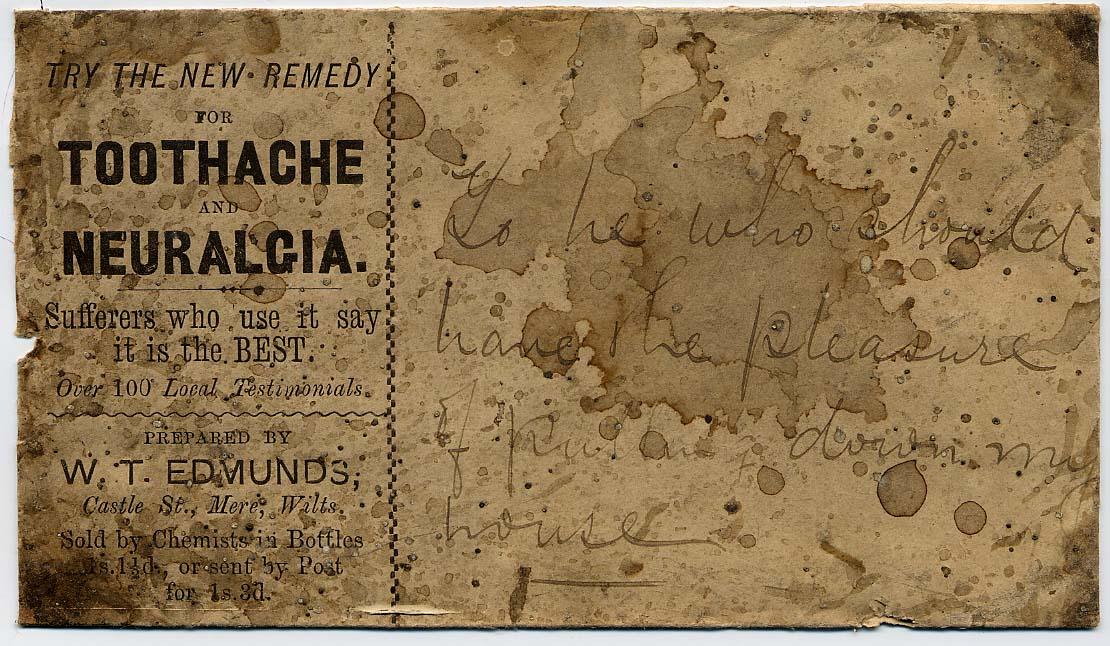 TRY THE NEW REMEDY
FOR
TOOTHACHE
AND
NEURALGIA.
Sufferers who use it say
it is the BEST.
Over 100 Local Testimonials.
PREPARED BY
W. T. EDMUNDS,
Castle St., Mere, Wilts.
Sold by Chemists in Bottles
1s.1½d., or sent by Post
for 1s.3d.
To he who should
have the pleasure
of pulling down my
house